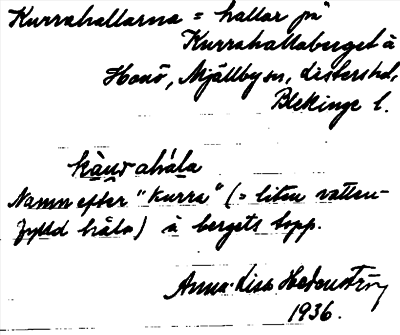 Kurrahallarna = hallar på
Kurrahallaberget å
Hanö, Mjällby sn, Listers hd,
Blekinge l.
kàur ahála
Namn efter "Kurra" (= liten vatten-
fylld håla) å bergets topp.
Anna-Lisa Hedenström
1936.